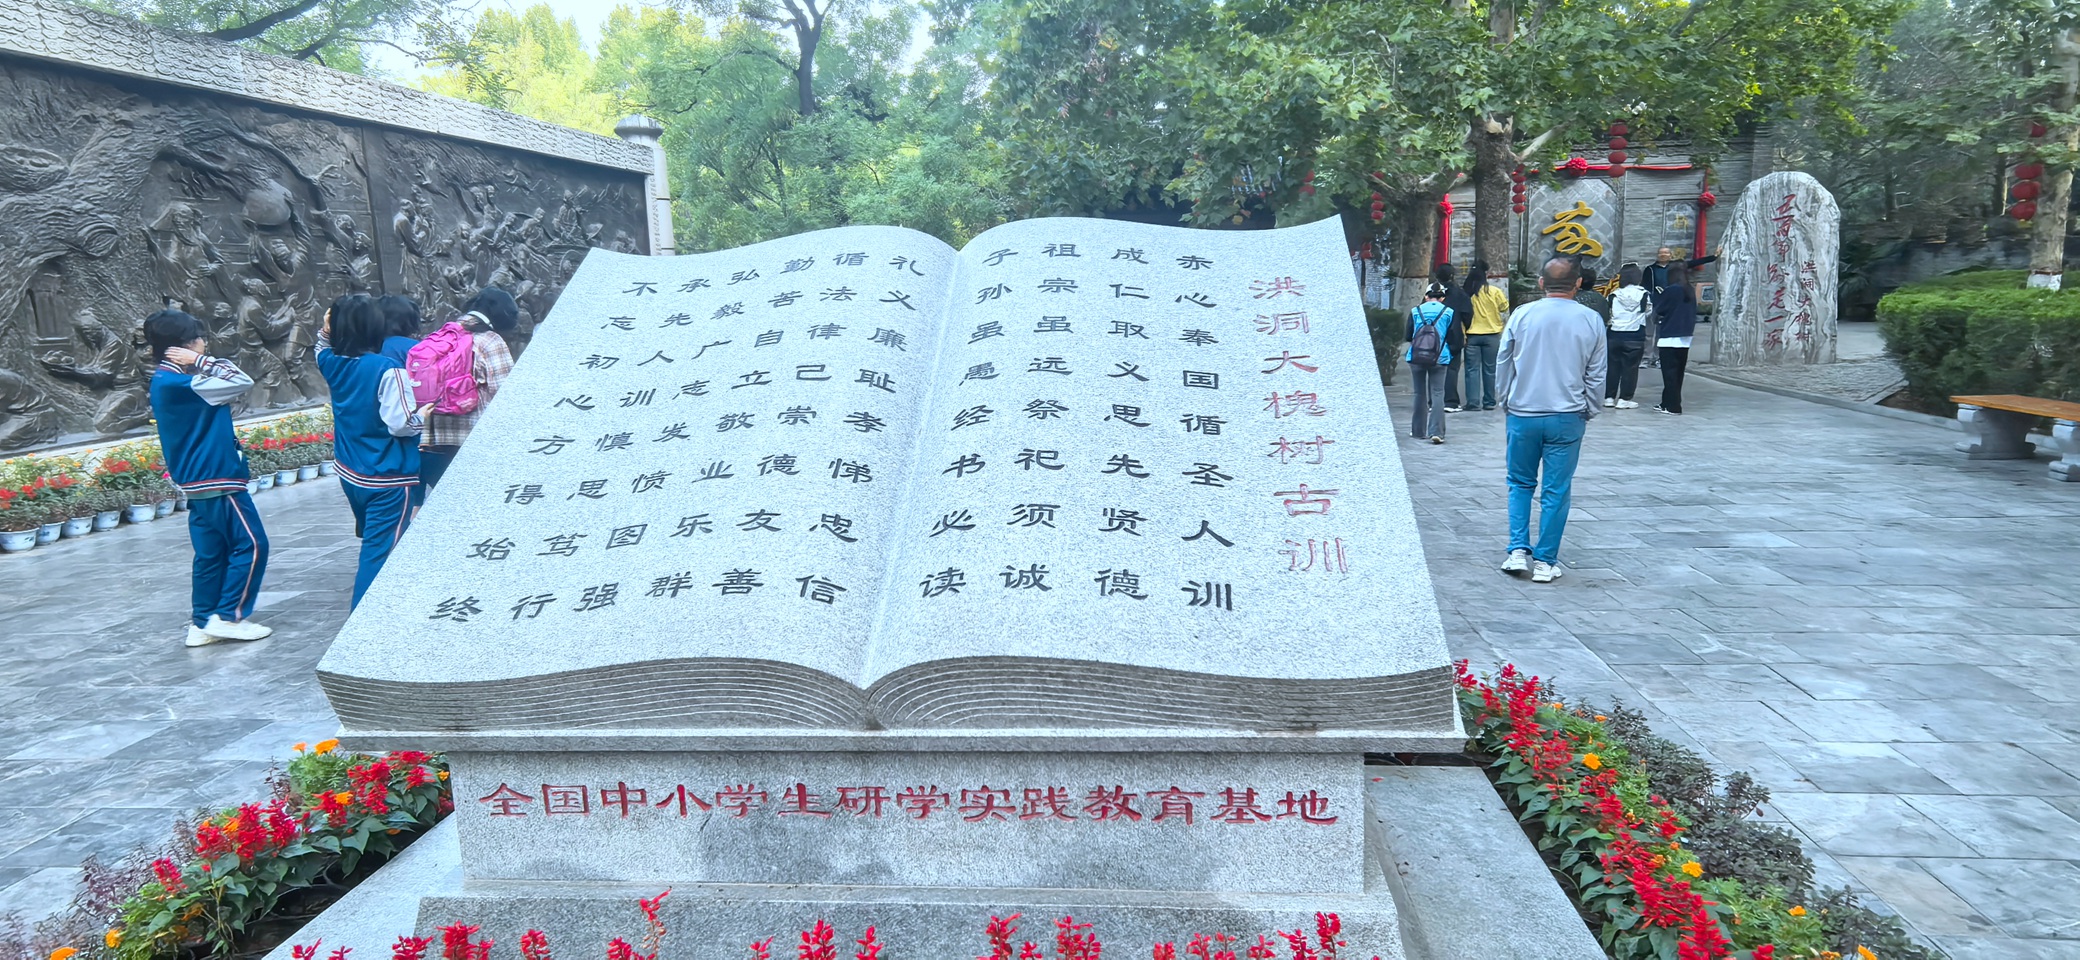 洪洞大槐树古训
赤心奉国循圣人训
成仁取义思先贤德
祖宗虽远祭祀须诚
子孙虽愚经书必读
礼义廉耻孝悌忠信
循法律己崇德友善
勤苦自立敬业乐群
弘毅广志发愤图强
承先人训慎思笃行
不忘初心方得始终
全国中小学生研学实践教育基地
洪洞大槐树
五百年前老一家